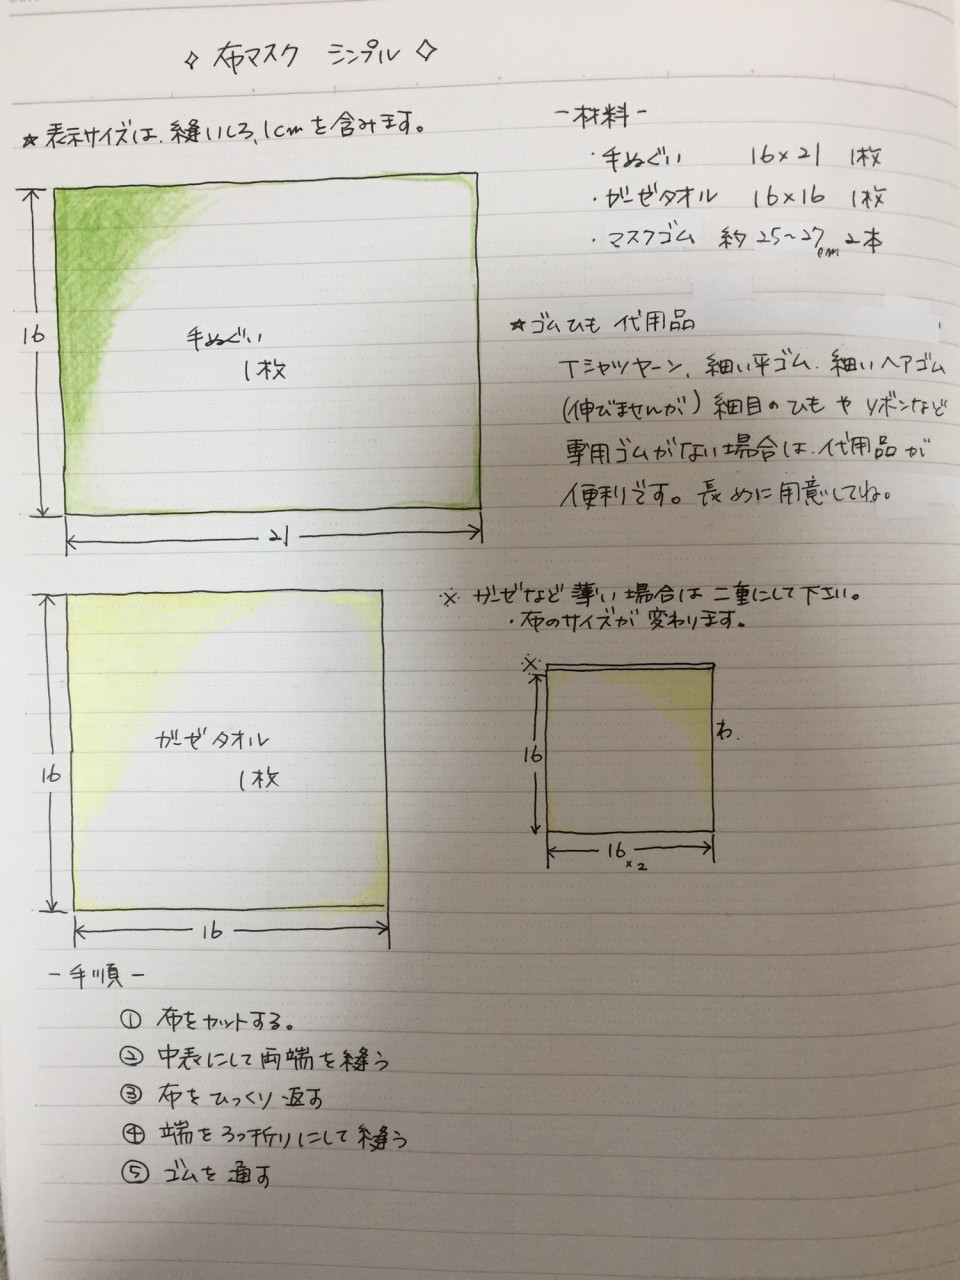 ◇ 布マスク シンプル ◇
☆ 表示サイズは、縫いしろ、1cmを含みます。
16
手ぬぐい
1枚
21
16
ガーゼタオル
1枚
16
-材料-
・手ぬぐい 16×21 1枚
・ガーゼタオル 16×16 1枚
・マスクゴム 約25~27cm 2本
☆ゴムひも 代用品
Tシャツヤーン、細い平ゴム、細いヘアゴム
(伸びませんが) 細目のひもやリボンなど
専用ゴムがない場合は、代用品が
便利です。長めに用意してね。
※ ガーゼなど薄い場合は二重にして下さい。
・布のサイズが変わります。
※
16
わ.
16×2
-手順-
① 布をカットする。
② 中表にして両端を縫う
③ 布をひっくり返す
④ 端を3つ折りにして縫う
⑤ ゴムを通す